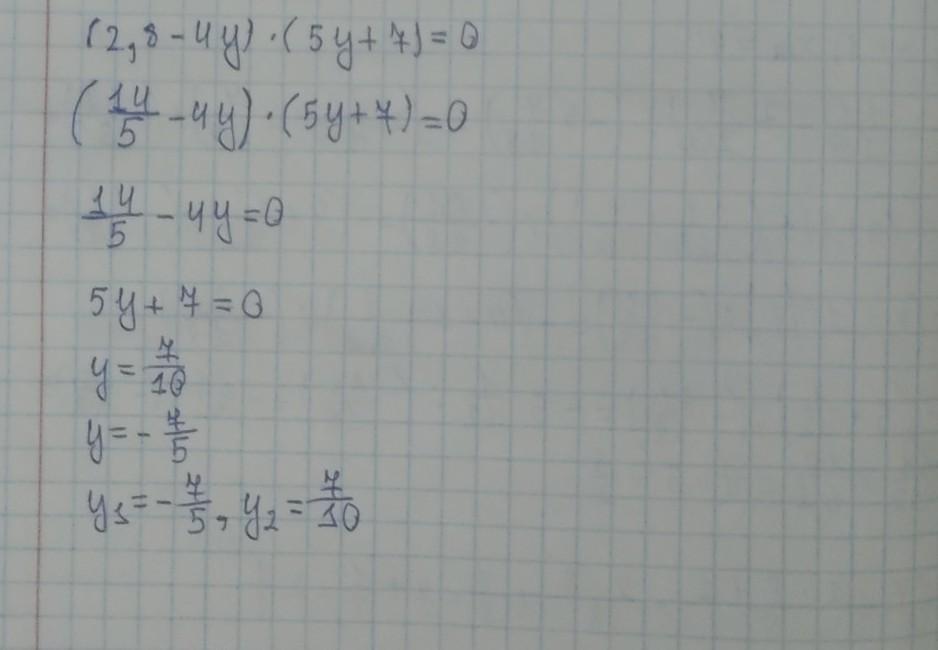 (2,8-4y)·(5y+7)=0
(14/5-4y)·(5y+7)=0
14/5-4y=0
5y+7=0
y=7/10
y=-7/5
y₁=-7/5, y₂=7/10